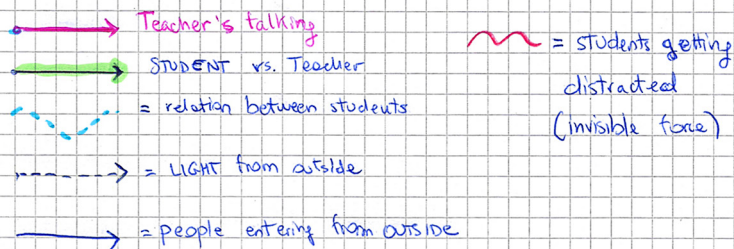 Teacher's talking
STUDENT vs. Teacher
= relation between students
= LIGHT from outside
= people entering from OUTSIDE
= students getting
distracted
(invisible force)